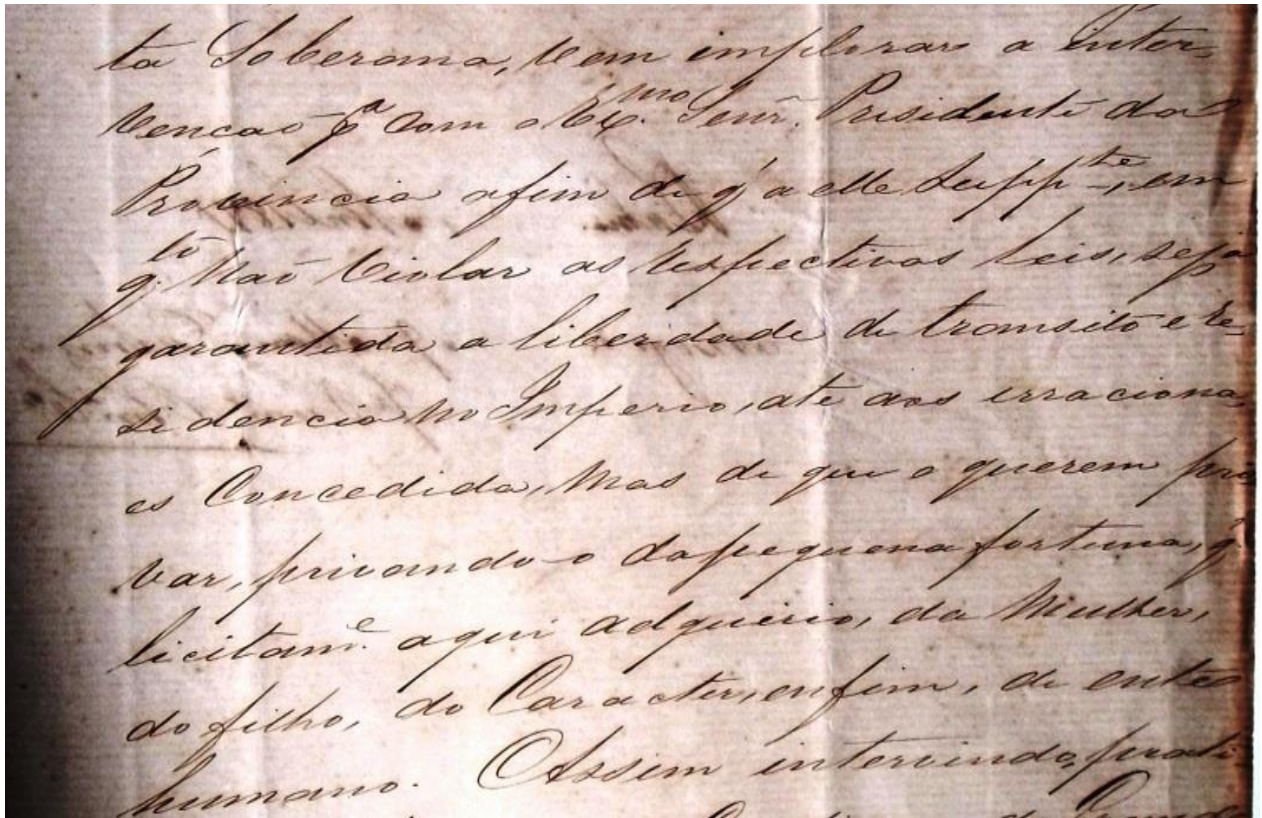 ta Soberana, vem implorar a inter-
venção pª com o Exmo. Senr. Presidente da
Provincia afim de q' a elle Suppte., em
qto. não violar as respectivas leis, seja
garantida a liberdade de transito e re-
sidencia no Imperio, até aos irraciona
es Concedida, mas de que o querem pri
var, privando-o da pequena fortuna, q'
licitame. aqui adquirio, da Mulher,
do filho, do Caracter, enfim, de ente
humano. Assim intervindo, prati-